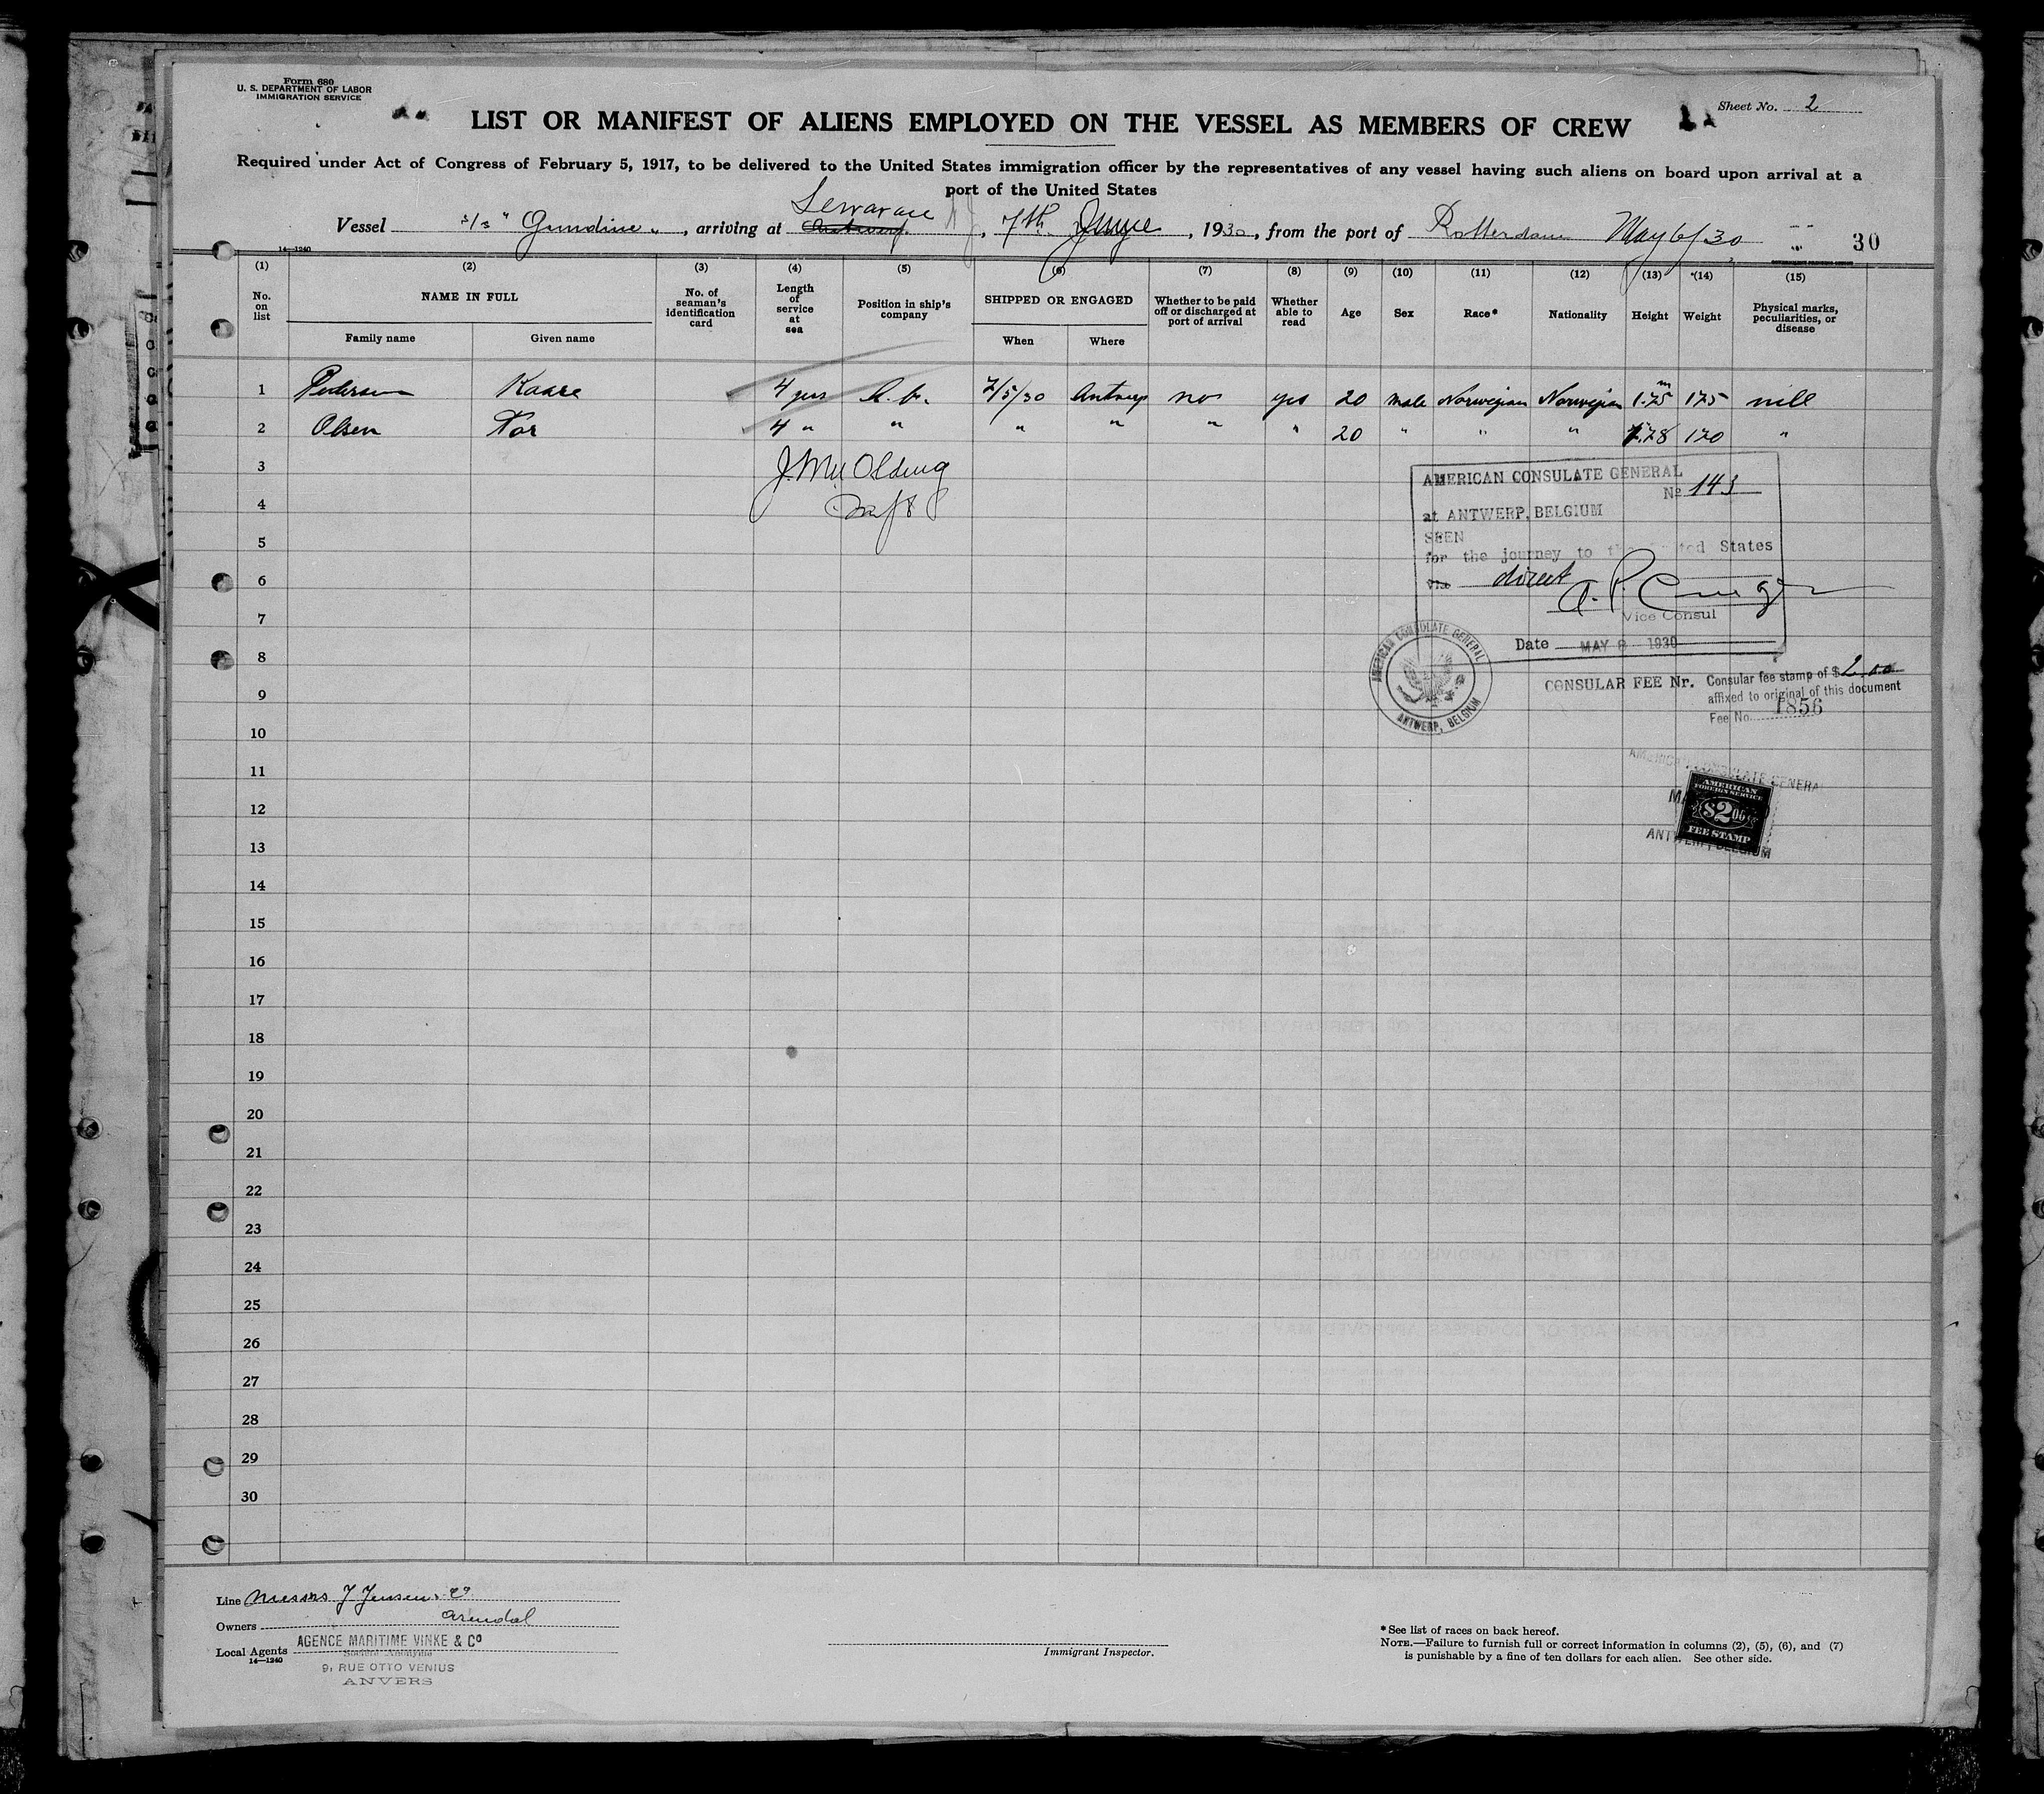 Form 680
U. S. DEPARTMENT OF LABOR
IMMIGRATION SERVICE
Sheet No. 2
LIST OR MANIFEST OF ALIENS EMPLOYED ON THE VESSEL AS MEMBERS OF CREW
Required under Act of Congress of February 5, 1917, to be delivered to the United States immigration officer by the representatives of any vessel having such aliens on board upon arrival at a
port of the United States
Vessel s/s "Gundine", arriving at Antwerp, 7th June, 1930, from the port of Rotterdam May 6/30
30
14—1240
(1) (2) (3) (4) (5) (6) (7) (8) (9) (10) (11) (12) (13) (14) (15)
No. on list NAME IN FULL Family name Given name No. of seaman's identification card Length of service at sea Position in ship's company SHIPPED OR ENGAGED When Where Whether to be paid off or discharged at port of arrival Whether able to read Age Sex Race* Nationality Height Weight Physical marks, peculiarities, or disease
1 Pedersen Kaare 4 yrs A.b. 7/5/30 Antwerp no yes 20 male Norwegian Norwegian 1.75 m 175 nill
2 Olsen Tor 4 " " " " " " 20 " " " 1.78 170 "
3
4
5
6
7
8
9
10
11
12
13
14
15
16
17
18
19
20
21
22
23
24
25
26
27
28
29
30
AMERICAN CONSULATE GENERAL
No 143
at ANTWERP, BELGIUM
SEEN
for the journey to the United States
via direct
Vice Consul
Date MAY 8 1930
AMERICAN CONSULATE GENERAL
ANTWERP, BELGIUM
CONSULAR FEE Nr.
Consular fee stamp of $2.00
affixed to original of this document
Fee No. 1856
AMERICAN CONSULATE GENERAL
AMERICAN
FOREIGN SERVICE
$2.00
FEE STAMP
ANTWERP, BELGIUM
Line Messrs J Jensen & Co
Owners Arendal
Local Agents AGENCE MARITIME VINKE & Co
14—1240
Société Anonyme
9, RUE OTTO VENIUS
ANVERS
Immigrant Inspector.
* See list of races on back hereof.
NOTE.—Failure to furnish full or correct information in columns (2), (5), (6), and (7)
is punishable by a fine of ten dollars for each alien. See other side.